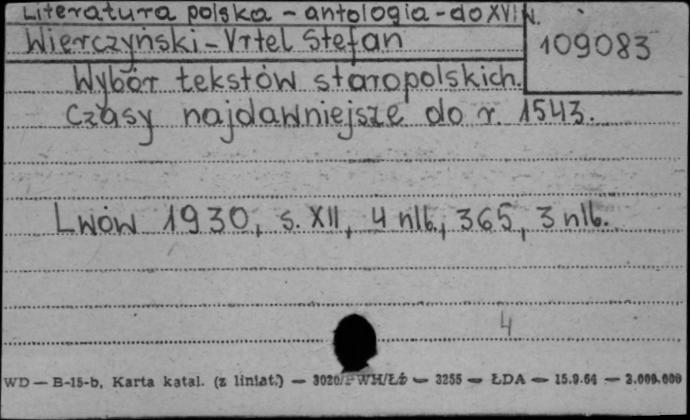 Literatura polska - antologia - do XVI w.
Wierczyński - Vrtel Stefan
109083
Wybór tekstów staropolskich.
Czasy najdawniejsze do r. 1543.
Lwów 1930, s. XII, 4 nlb., 365, 3 nlb.
4
WD — B-15-b, Karta katal. (z liniat.) — 3020/PWH/Łż — 3255 — ŁDA — 15.9.64 — 2.000.000